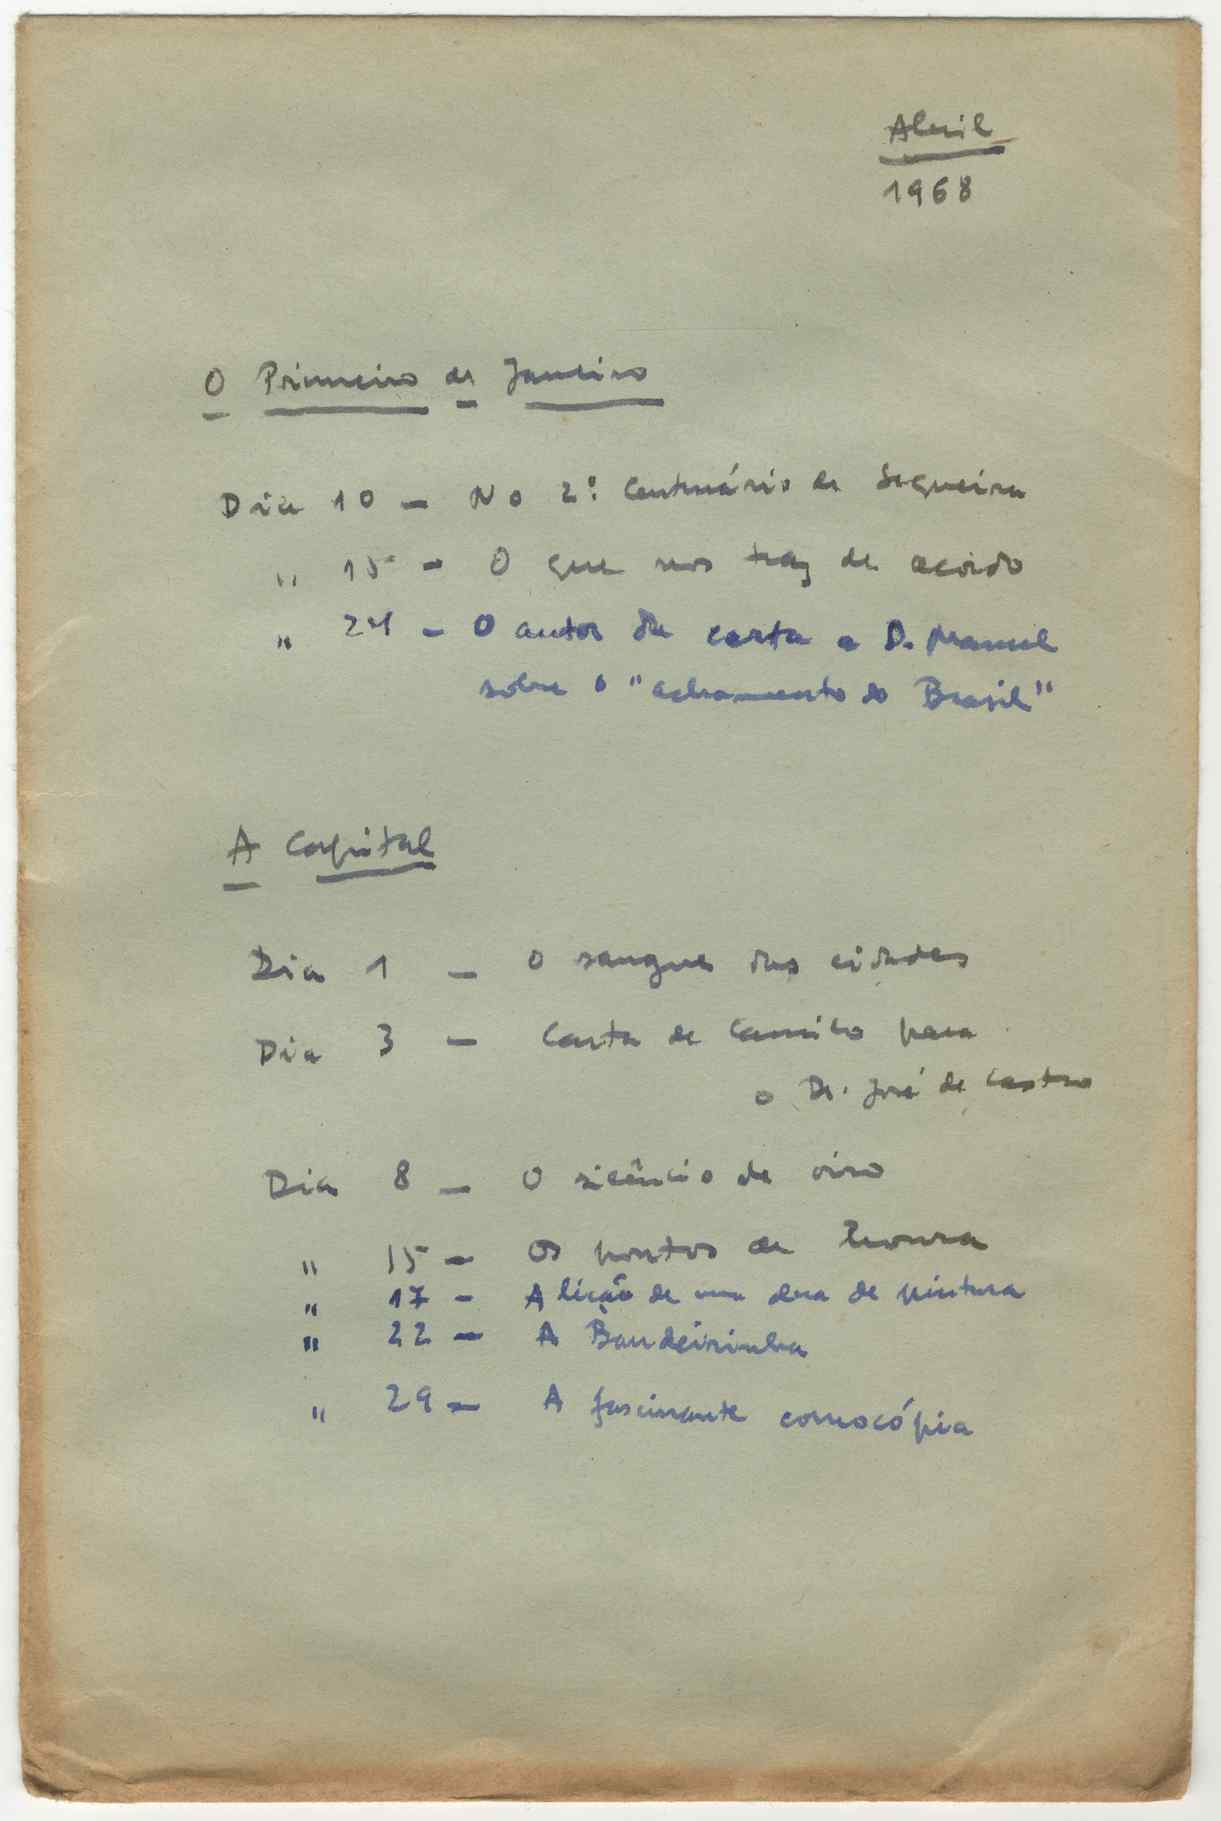 Abril
1968
O Primeiro de Janeiro
Dia 10 — No 2º Centenário de Sequeira
" 15 — O que nos traz de acordo
" 24 — O autor da carta a D. Manuel
sobre o "achamento do Brasil"
A Capital
Dia 1 — O sangue das cidades
Dia 3 — Carta de Camilo para
o Dr. José de Castro
Dia 8 — O silêncio de oiro
" 15 — Os pontos de
" 17 — A lição de uma obra de pintura
" 22 — A Bandeirinha
" 29 — A fascinante cornocópia